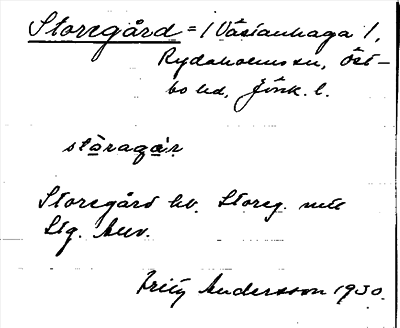 Storegård = / Västanhaga /,
Rydaholms sn, Öst-
bo hd, Jönk. l.
stòragàr
Storegård hv. Storeg. mtl
Stg. Auv.
Fritz Andersson 1930.